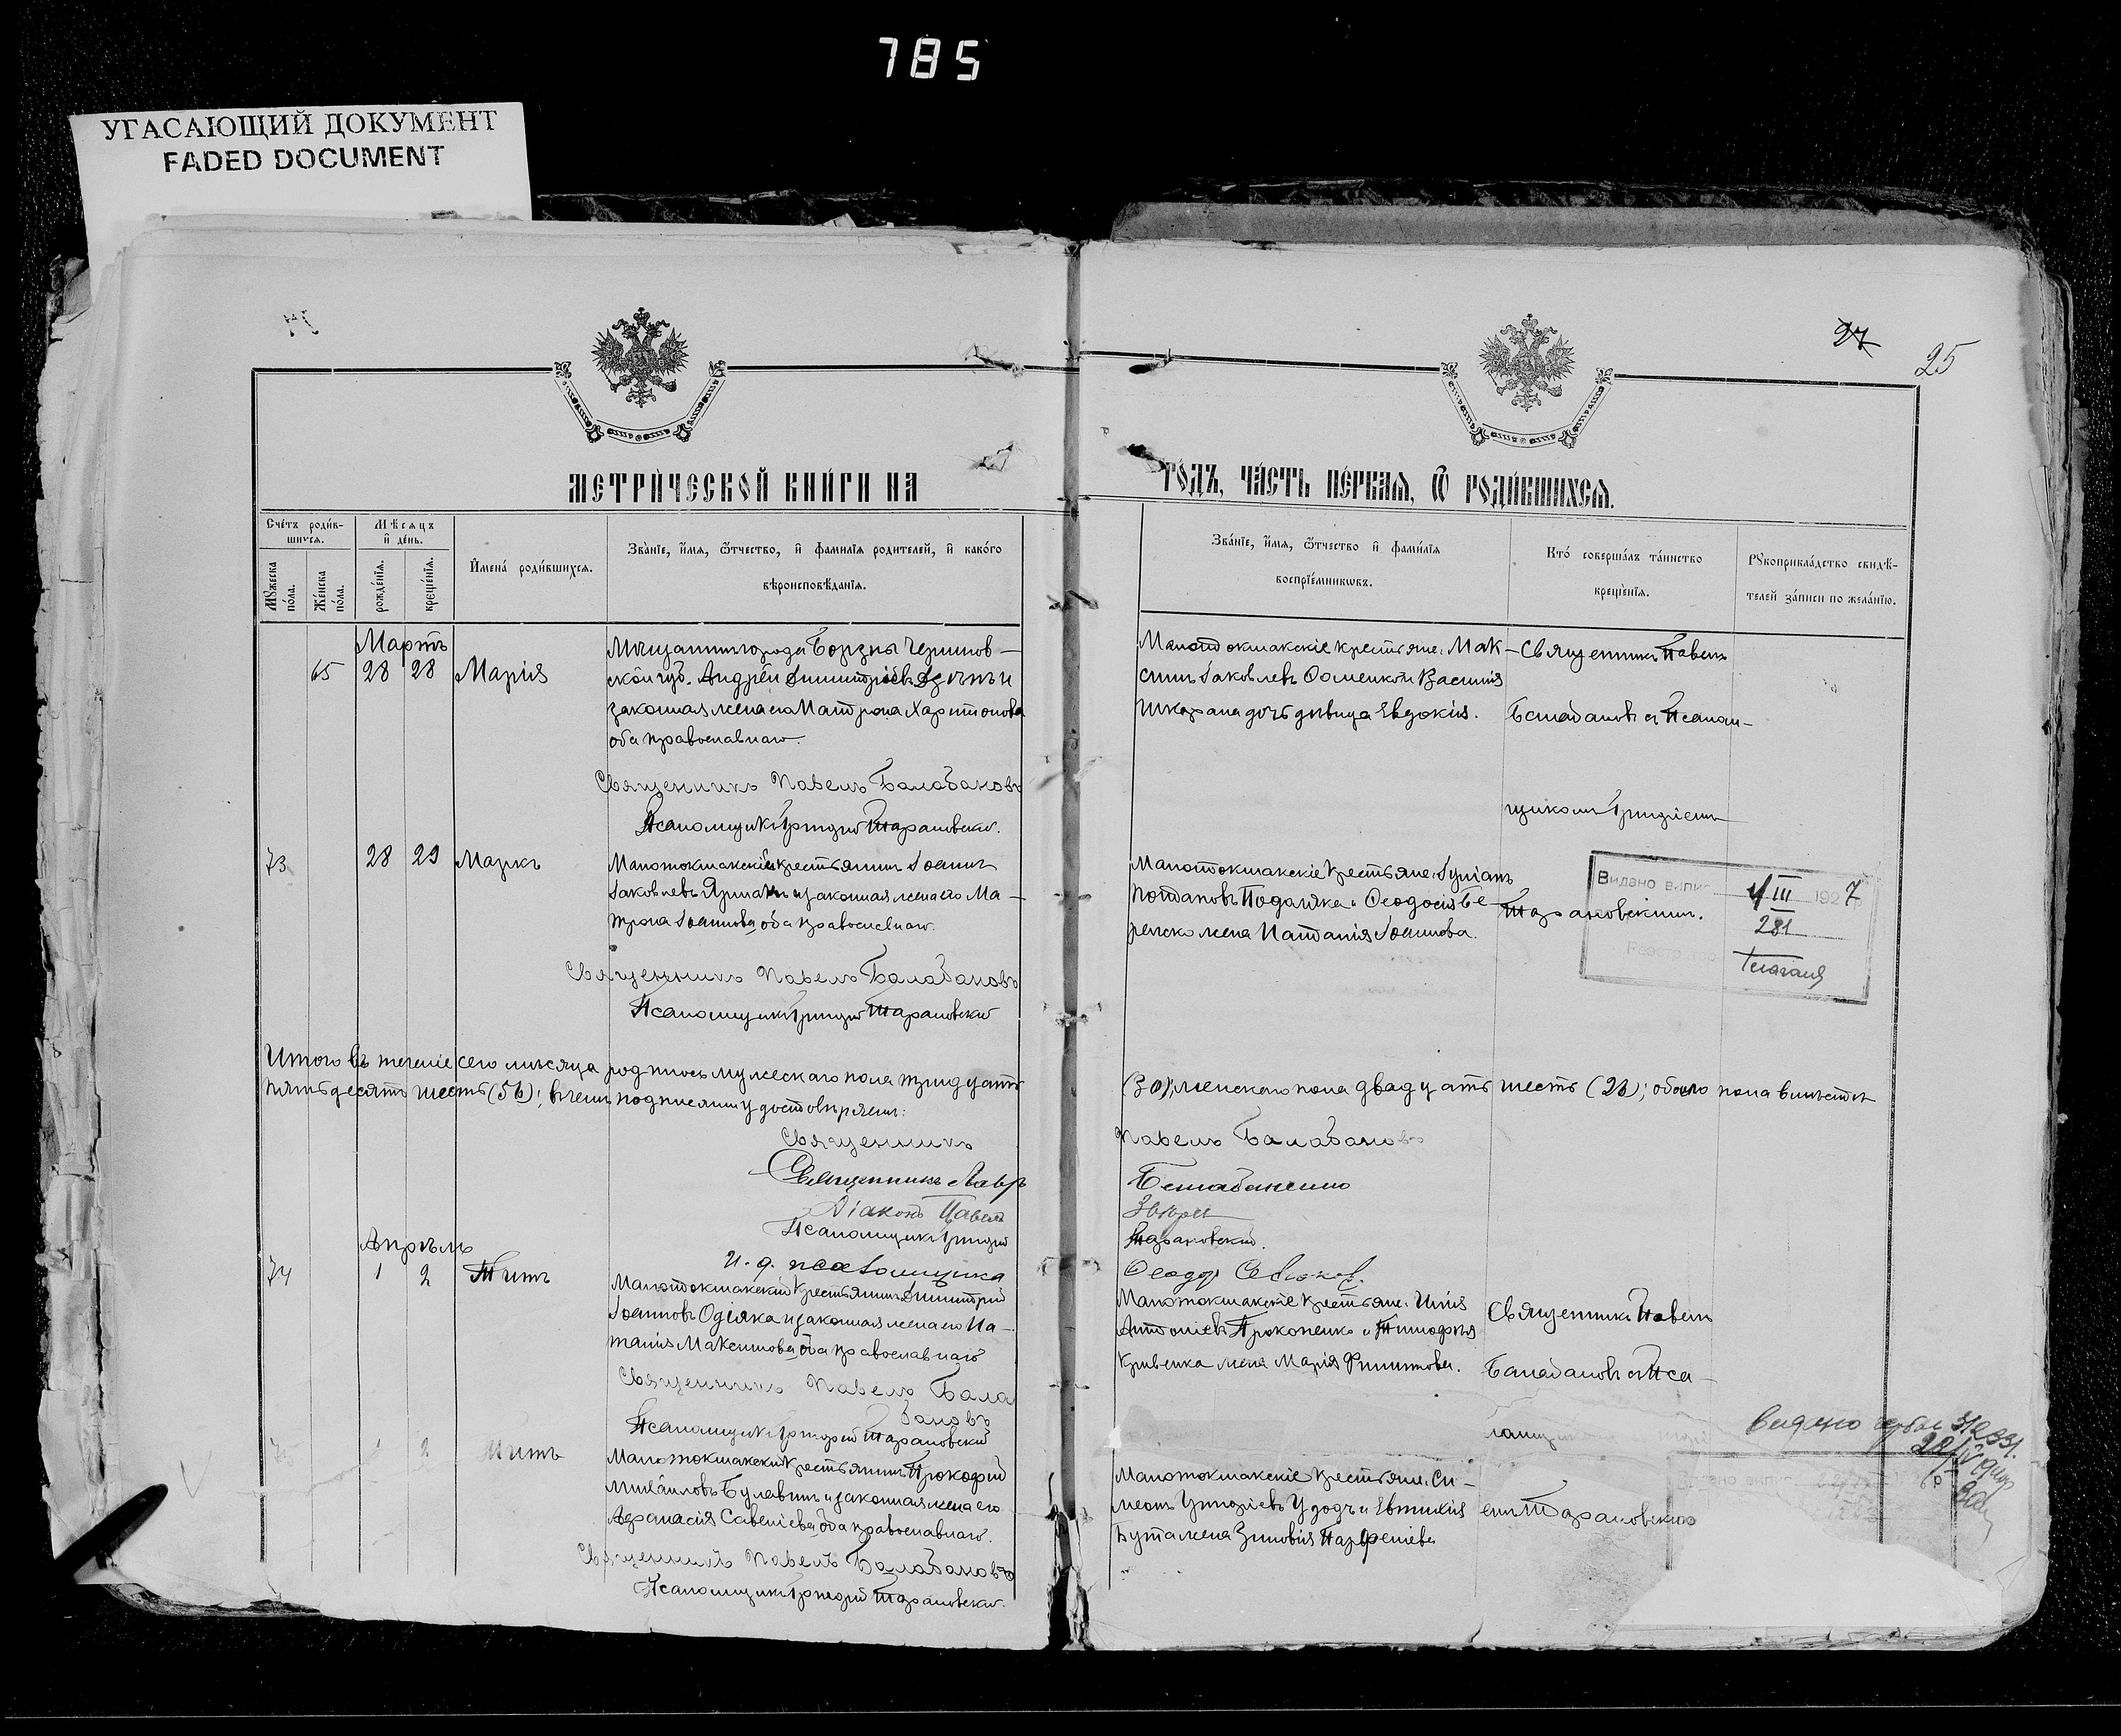 785
УГАСАЮЩИЙ ДОКУМЕНТ
FADED DOCUMENT
27
25
МЕТРИ́ЧЕСКОЙ КНИ́ГИ НА
ГО́ДЪ, ЧА́СТЬ ПЕ́РВАЯ, Ѽ РОДИ́ВШИХСЯ.
Сче́тъ роди́в-
шихся.
Мѣ́сяцъ
и де́нь.
Му́жеска
по́ла.
Же́нска
по́ла.
рожде́нія.
креще́нія.
Имена́ роди́вшихся.
Зва́ніе, и́мя, ѻ́тчество, и фами́лія родителей, и како́го
вѣроисповѣ́данія.
Зва́ніе, и́мя, ѻ́тчество и фами́лія
воспріе́мниковъ.
Кто́ соверша́лъ та́инство
креще́нія.
Рукоприкла́дство свидѣ́-
телей за́писи по жела́нію.
Мартъ
65 28 28 Марія
Мѣщанинъ города Борзны Чернигов-
ской губ. Андрей Димитріевъ
законная жена его Матрона Харитонова
оба православнаго.
Священникъ Павелъ Балабановъ
Псаломщикъ Григорій Тарановскій.
Малотокмакскіе крестьяне: Мак-
симъ Іаковлевъ и Василія
дочь дѣвица Евдокія.
Священникъ Павелъ
Балабановъ съ Псалом-
щикомъ Григоріемъ
Тарановскимъ.
73 28 29 Маркъ
Малотокмакскій крестьянинъ Іоаннъ
Іаковлевъ и законная жена его Ма-
трона Іоаннова, оба православнаго.
Священникъ Павелъ Балабановъ
Псаломщикъ Григорій Тарановскій
Малотокмакскіе крестьяне:
и Ѳеодосія Бе-
жена Наталія Іоаннова.
Видано випис 4/III 1927
281
Реєстратор
Итого въ теченіе сего мѣсяца родилось мужескаго пола тридцать
(30); женскаго пола двадцать шесть (26); обоего пола вмѣстѣ
пятьдесятъ шесть (56); въ чемъ подписями удостовѣряемъ:
Священникъ Павелъ Балабановъ
Священникъ Лавръ Балабаненко
Діаконъ Павелъ
Псаломщикъ Григорій Тарановскій.
И. д. псаломщика Ѳеодоръ
Апрѣль
74 1 2 Титъ
Малотокмакскій крестьянинъ Димитрій
Іоанновъ Одіяка и законная жена его На-
талія Максимова, оба православнаго
Священникъ Павелъ Бала
бановъ
Псаломщикъ Григорій Тарановскій
Малотокмакскіе крестьяне: Илія
Антоніевъ Прокопенко и Тимоѳея
Кривенка жена Марія Филиппова.
Священникъ Павелъ
Балабановъ съ Пса-
ломщ
емъ Тарановскимъ
1 2 Титъ
Малотокмакскій крестьянинъ Прокофій
Михаиловъ Булавинъ и законная жена его
Аѳанасія Савеліева, оба православнаго.
Священникъ Павелъ Балабановъ
Псаломщикъ Григорій Тарановскій.
Малотокмакскіе крестьяне: Си-
меонъ Григоріевъ Удодъ и Евтихія
Бута жена Зиновія Парфеніева